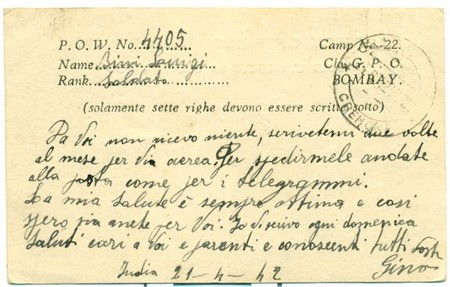 P. O. W. No. 4405 Camp No. 22.
Name Bini Luigi C/o G. P. O.
Rank Soldato BOMBAY.
(solamente sette righe devono essere scritte sotto)
Da Voi non ricevo niente, scrivetemi due volte
al mese per via aerea. Per spedirmele andate
alla posta come per i telegrammi.
La mia salute è sempre ottima e così
spero sia anche per Voi. Io Vi scrivo ogni domenica
Saluti cari a Voi e parenti e conoscenti tutti
Gino
India 21-4-42